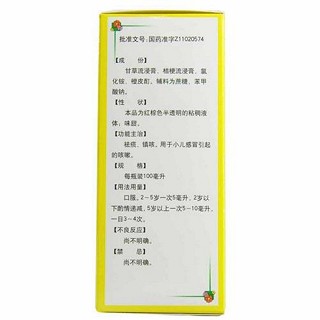 批准文号:国药准字Z11020574
【成 份】
甘草流浸膏、桔梗流浸膏、氯
化铵、橙皮酊、辅料为蔗糖、苯甲
酸钠。
【性 状】
本品为红棕色半透明的粘稠液
体;味甜。
【功能主治】
祛痰、镇咳。用于小儿感冒引起
的咳嗽。
【规 格】
每瓶装100毫升
【用法用量】
口服,2~5岁一次5毫升,2岁以
下酌情递减,5岁以上一次5~10毫升,
一日3~4次。
【不良反应】
尚不明确。
【禁 忌】
尚不明确。